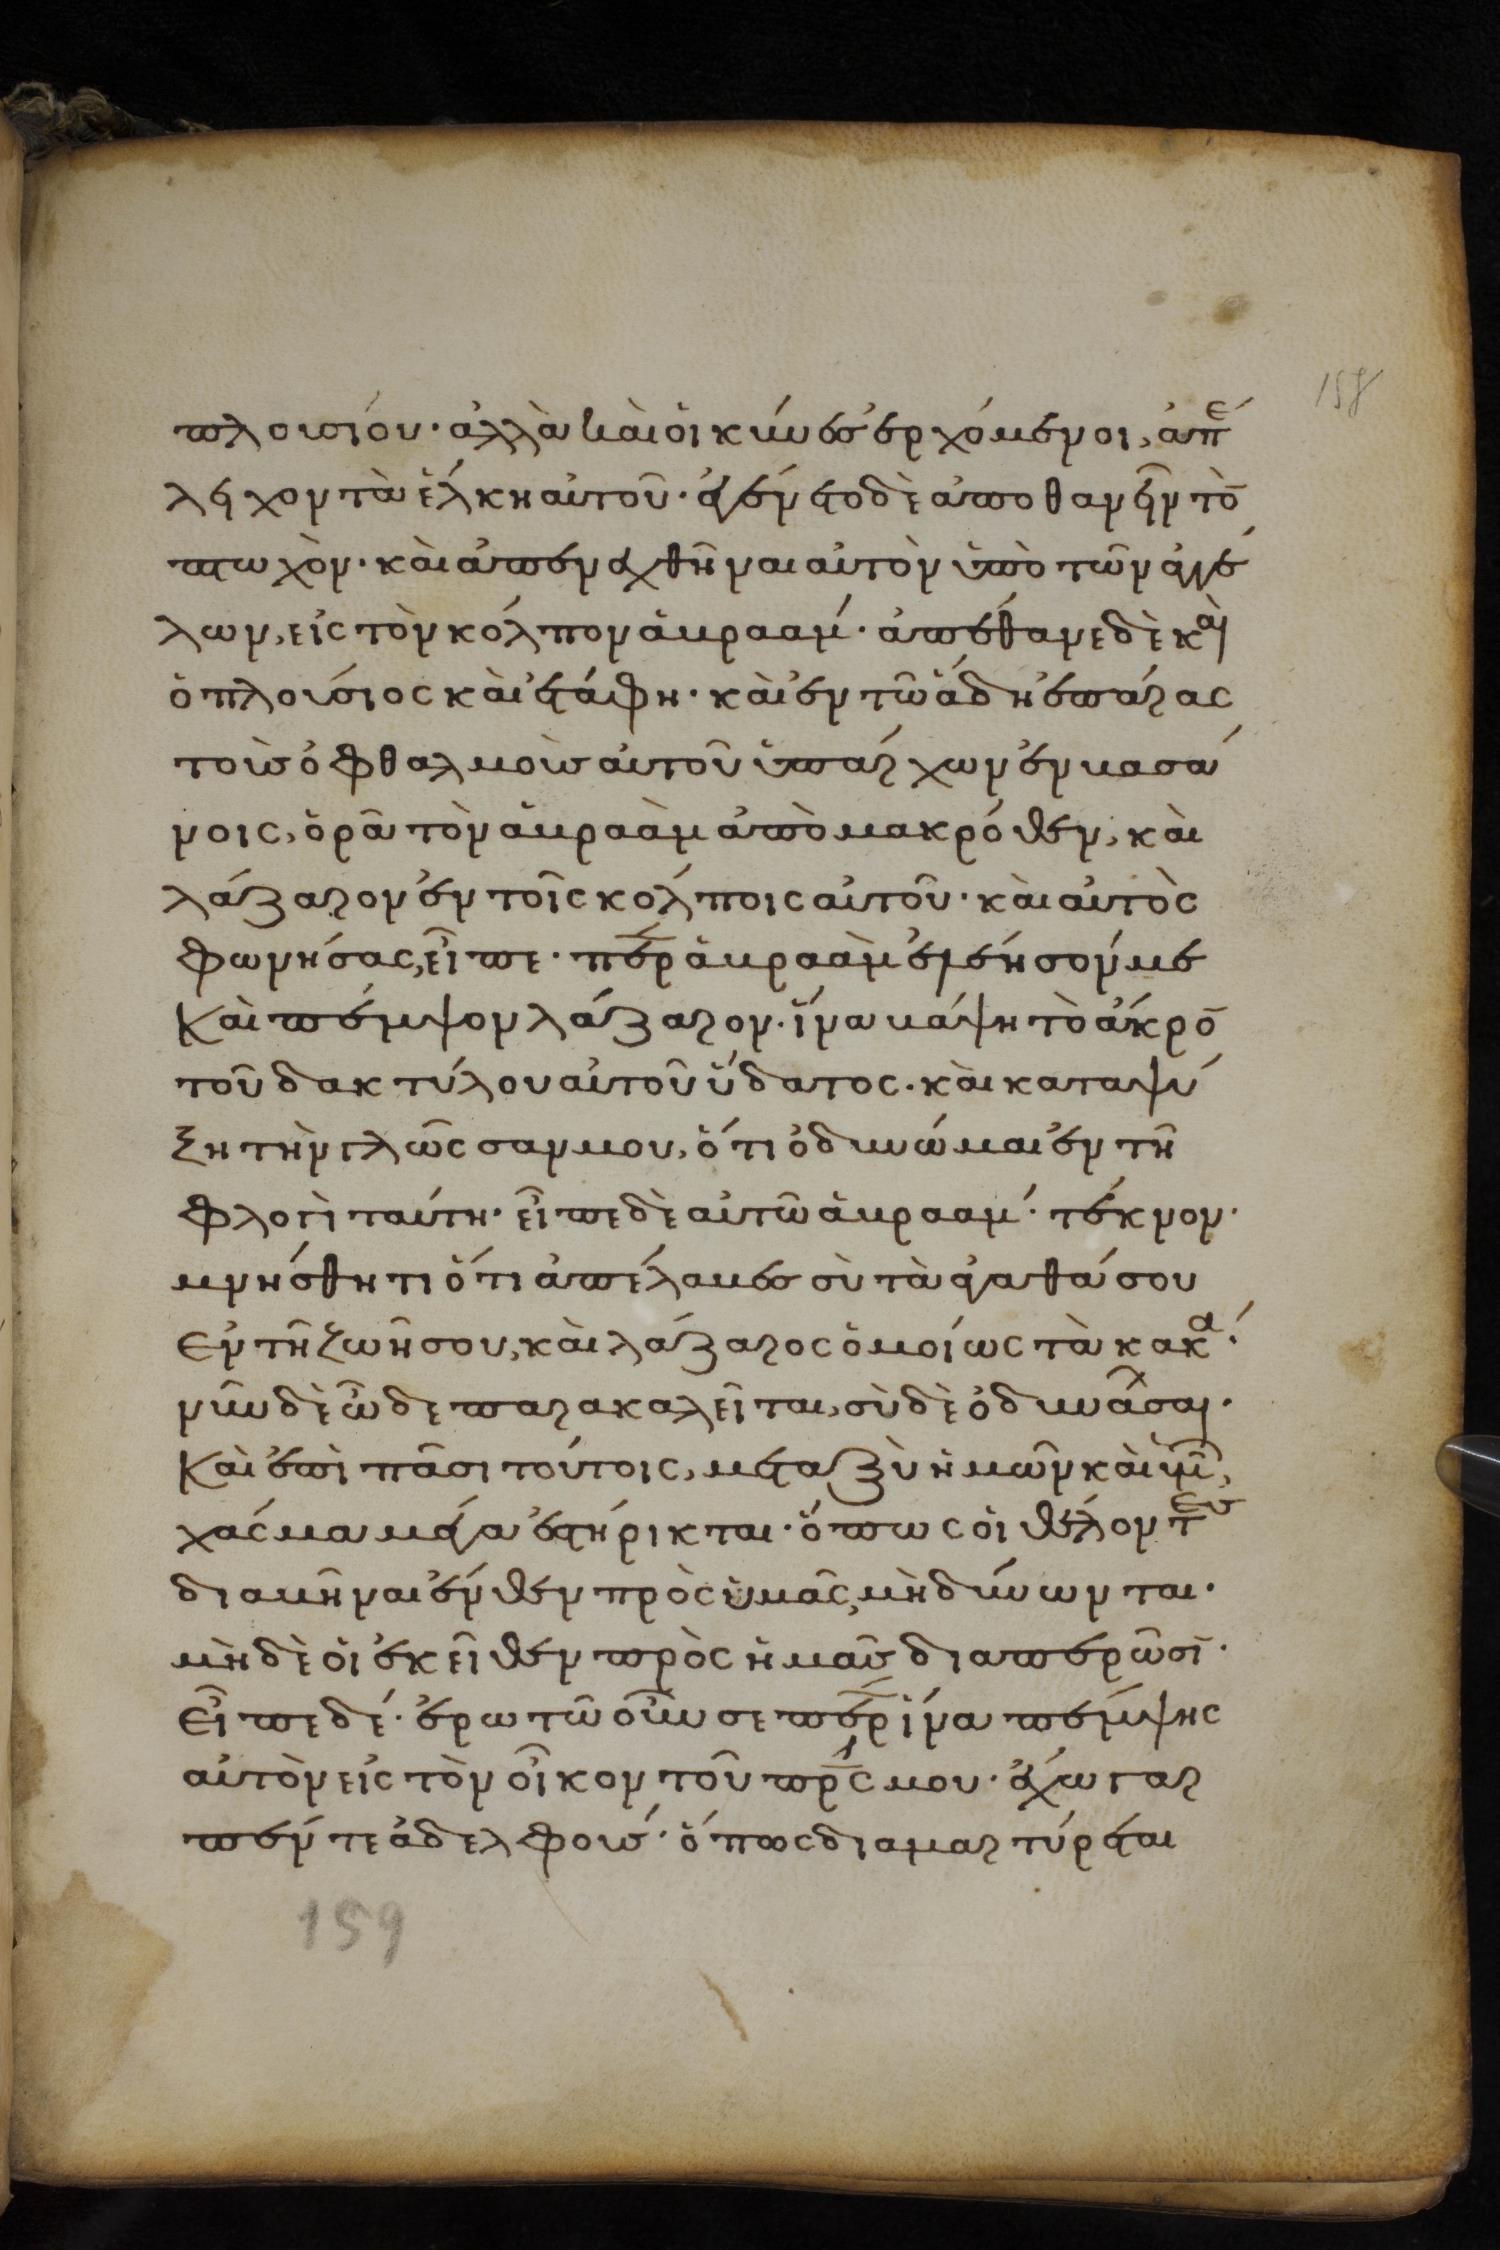 158
πλουσίου· ἀλλὰ καὶ οἱ κύνες ἐρχόμενοι, ἀπέ
λειχον τὰ ἕλκη αὐτοῦ· ἐγένετο δὲ ἀποθανεῖν τὸ̄
πτωχὸν· καὶ ἀπενεχθῆναι αὐτὸν ὑπὸ τῶν ἀγγέ
λων, εἰς τὸν κόλπον ἀβρααμ· ἀπέθανε δὲ καὶ
ὁ πλούσιος καὶ ἐτάφη· καὶ ἐν τῶ ἅδη ἐπάρας
τοὺς ὀφθαλμοὺς αὐτοῦ ὑπάρχων ἐν βασά
νοις, ὁρᾶ τὸν ἀβραὰμ ἀπὸ μακρόθεν, καὶ
λάζαρον ἐν τοῖς κόλποις αὐτοῦ· καὶ αὐτὸς
φωνήσας, εἶπε· πε̅ρ ἀβραὰμ ἐλέησόν με
Καὶ πέμψον λάζαρον· ἵνα βάψη τὸ ἄκρο̄
τοῦ δακτύλου αὐτοῦ ὕδατος· καὶ καταψύ
ξη τὴν γλῶσσαν μου, ὅτι ὀδυνῶμαι ἐν τῆ
φλογὶ ταύτη· εἶπε δὲ αὐτῶ ἀβρααμ· τέκνον·
μνήσθητι ὅτι ἀπέλαβες σὺ τὰ ἀγαθά σου
Ἐν τῆ ζωῆ σου, καὶ λάζαρος ὁμοίως τὰ κακά·
νῦν δὲ ὧδε παρακαλεῖται, σὺ δὲ ὀδυνᾶσαι·
Καὶ ἐπὶ πᾶσι τούτοις, μεταξὺ ἡμῶν καὶ ὑμῶ̄,
χάσμα μέγα ἐστήρικται· ὅπως οἱ θέλοντες
διαβῆναι ἔνθεν πρὸς ὑμᾶς, μὴ δύνωνται·
μὴδὲ οἱ ἐκεῖθεν πρὸς ἡμᾶς διαπερῶσι·
Εἶπε δέ· ἐρωτῶ οὖν σε πε̅ρ ἵνα πέμψης
αὐτὸν εἰς τὸν οἶκον τοῦ πρ̅ς μου· ἔχω γαρ
πέντε ἀδελφούς· ὅπως διαμαρτύρεται
159